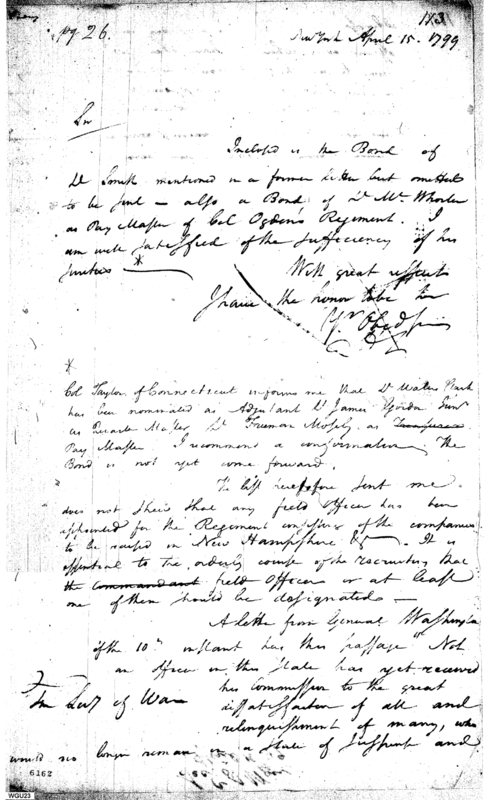 pg 26.
113
New York April 15. 1799
Sir
Inclosed is the Bond of
Lt Smith mentioned in a former letter but omitted
to be sent — also a Bond of Lt Mc Whorter
as Pay Master of Col Ogden's Regiment. I
am well satisfied of the sufficiency of his
sureties *
With great respect
I have the honor to be Sir
Yr Obed Ser
*
Col Taylor of Connecticut informs me that Lt Waters Clark
has been nominated as Adjutant Lt James Gordon Jun
as Quarter Master Lt Truman Mosely as
Pay Master. I recommend a confirmation. The
Bond is not yet come forward.
The list heretofore sent me
does not shew that any field Officer has been
appointed for the Regiment consisting of the companies
to be raised in New Hampshire &c. It is
essential to the orderly course of the recruiting that
the commandant field Officer or at least
one of them should be designated —
A letter from General Washington
of the 10th instant has this passage "Not
an officer in this State has yet received
his Commission to the great
dissatisfaction of all and
relinquishment of many, who
would no longer remain in a State of suspense and
Secy of War
6162
WGU23